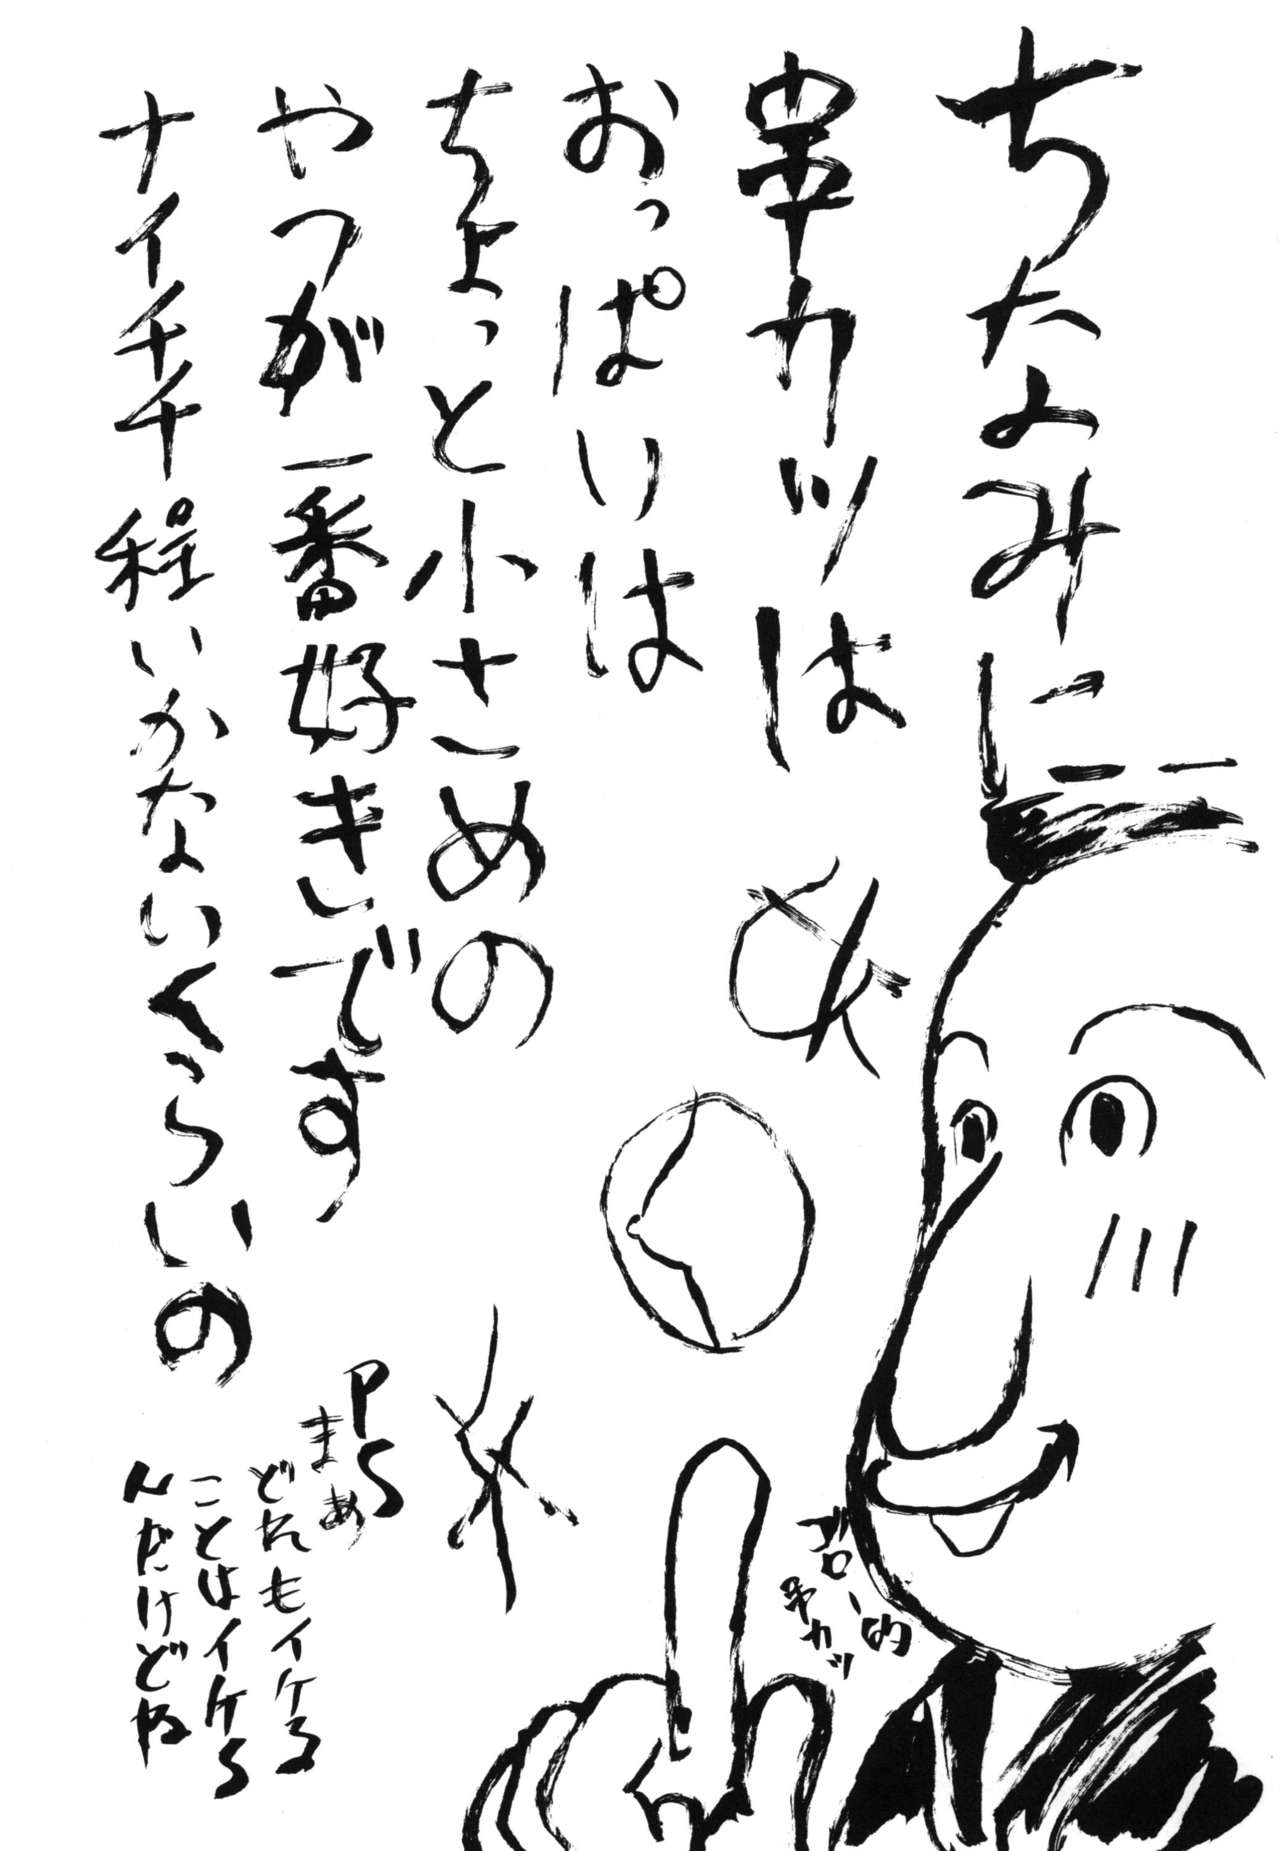 ちなみに
串カツは
おっぱいは
ちょっと小さめの
やつが一番好きです
ナイチチ程いかないくらいの
PS
まぁ
どれもイケる
ことはイケる
んだけどね
ゴロー的
串カツ